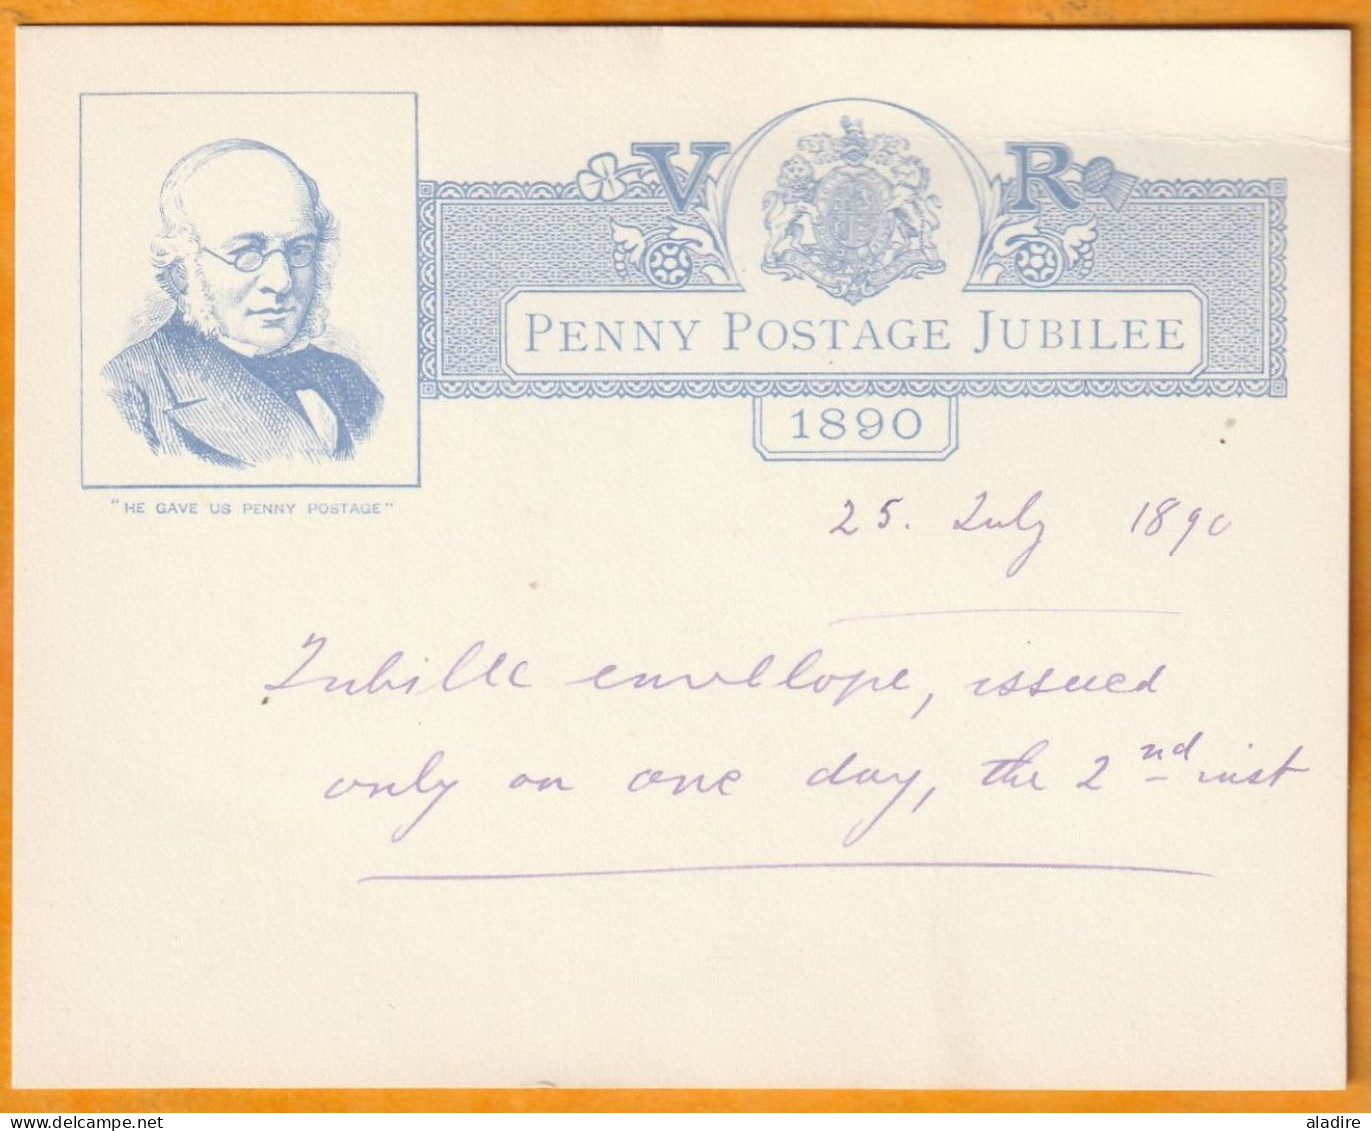 V R
PENNY POSTAGE JUBILEE
1890
"HE GAVE US PENNY POSTAGE"
25. July 1890
Jubilee envelope, issued
only on one day, the 2nd inst
delcampe.net
aladire